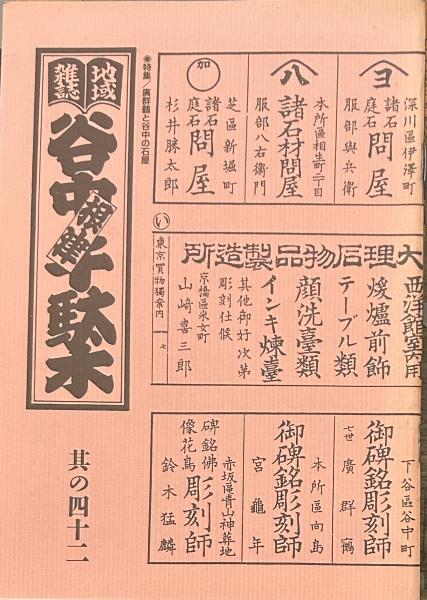 地域雑誌
谷中根津千駄木
其の四十二
●特集/廣群鶴と谷中の石屋
ヨ
深川區伊澤町
諸石庭石問屋
服部與兵衛
八
本所區相生町二丁目
諸石材問屋
服部八右衛門
加
芝區新堀町
諸石庭石問屋
杉井勝太郎
大理石物品製造所
西洋館室内用
煖爐前飾
テーブル類
顔洗臺類
インキ煉臺
其他御好次第
彫刻仕候
京橋區米女町
山崎喜三郎
い
東京買物獨案内
七
下谷區谷中町
御碑銘彫刻師
七世 廣群鶴
本所區向島
御碑銘彫刻師
宮龜年
赤坂區青山神葬地
碑銘佛像花鳥彫刻師
鈴木猛麟